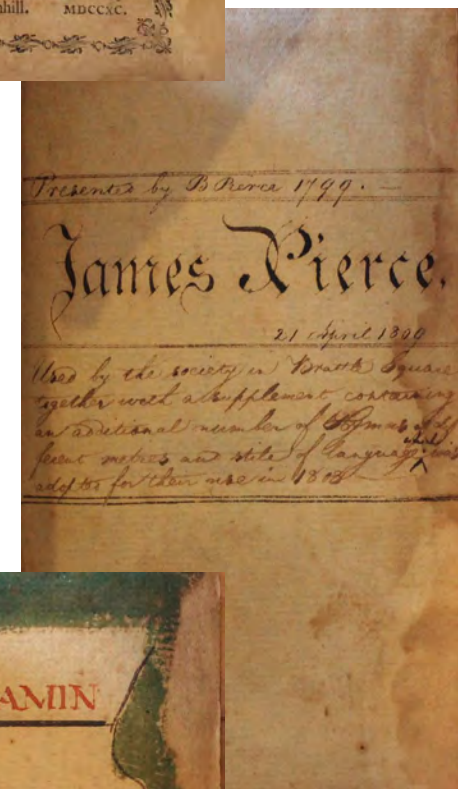 nhill. MDCCXC.
Presented by B Pierce 1799. —
James Pierce.
21 April 1800
Used by the society in Brattle Square
together with a supplement containing
an aditional number of Hymns
ferent metres and stile of language which was
adopted for their use in 1808
AMIN